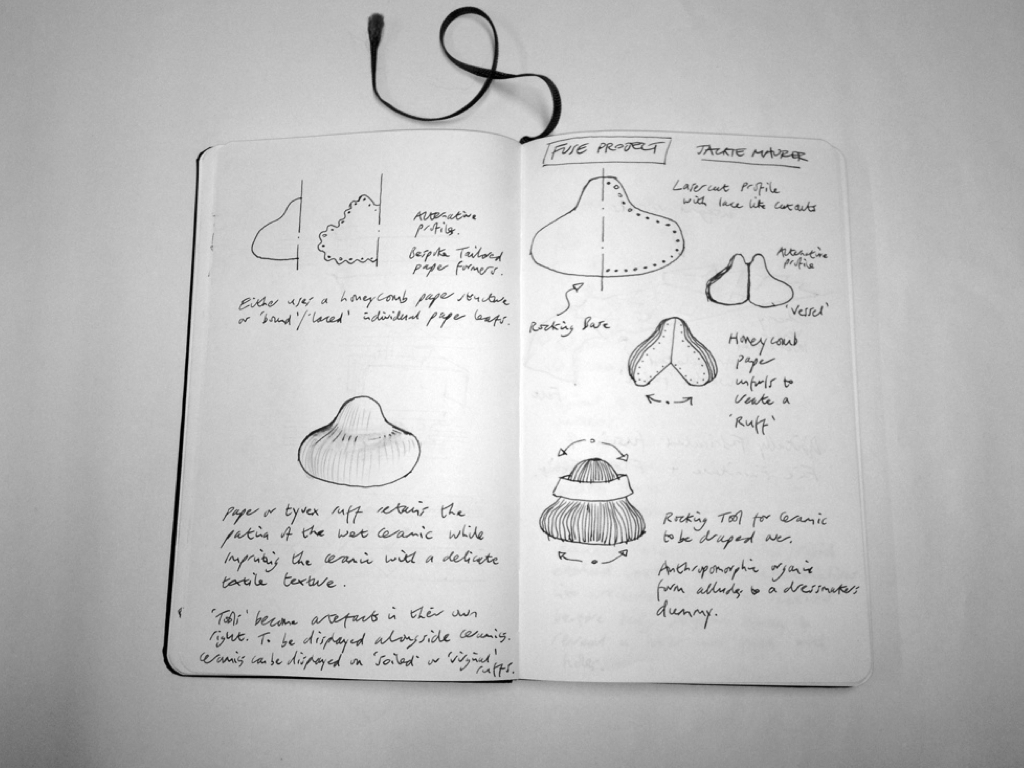 Alternative
profiles.
Bespoke Tailored
paper formers.
Either uses a honeycomb paper structure
or 'bound'/'laced' individual paper leafs.
paper or tyvex ruff retains the
patina of the wet ceramic while
imprinting the ceramic with a delicate
textile texture.
'Tools' become artefacts in their own
right. To be displayed alongside ceramics.
Ceramics can be displayed on 'soiled' or 'virginal'
ruffs.
FUSE PROJECT
JACKIE MAURER
Lasercut profile
with lace like cutouts
Alternative
profile
'Vessel'
Rocking Base
Honeycomb
paper
unfurls to
create a
'RUFF'
Rocking Tool for ceramic
to be draped over.
Anthropomorphic organic
form alludes to a dressmakers
dummy.